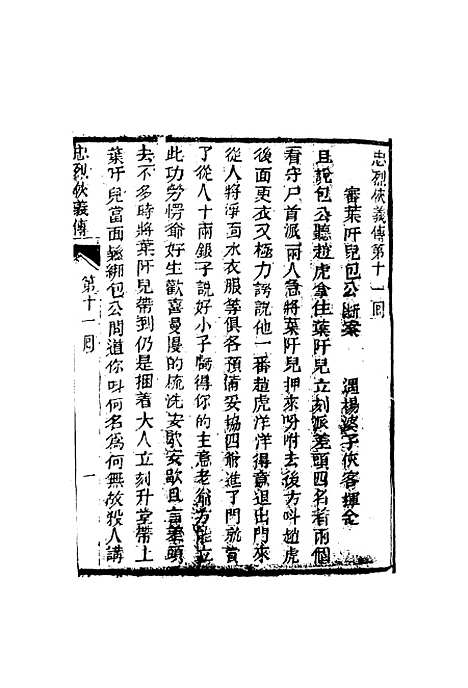 忠烈俠義傳第十一回
審葉阡兒包公斷案　遇楊婆子俠客揮金
且說包公聽趙虎拿住葉阡兒立刻派差頭四名着兩個
看守尸首派兩人急將葉阡兒押來吩咐去後方叫趙虎
後面更衣又極力誇說他一番趙虎洋洋得意退出門來
從人將淨面水衣服等俱各預備妥協四爺進了門就賞
了從人十兩銀子說好小子虧得你的主意老爺方能立
此功勞愣爺好生歡喜慢慢的梳洗安歇安歇且言差頭
去不多時將葉阡兒帶到仍是捆着大人立刻升堂帶上
葉阡兒當面鬆綁包公問道你叫何名為何無故殺人講
忠烈俠義傳　第十一回　一